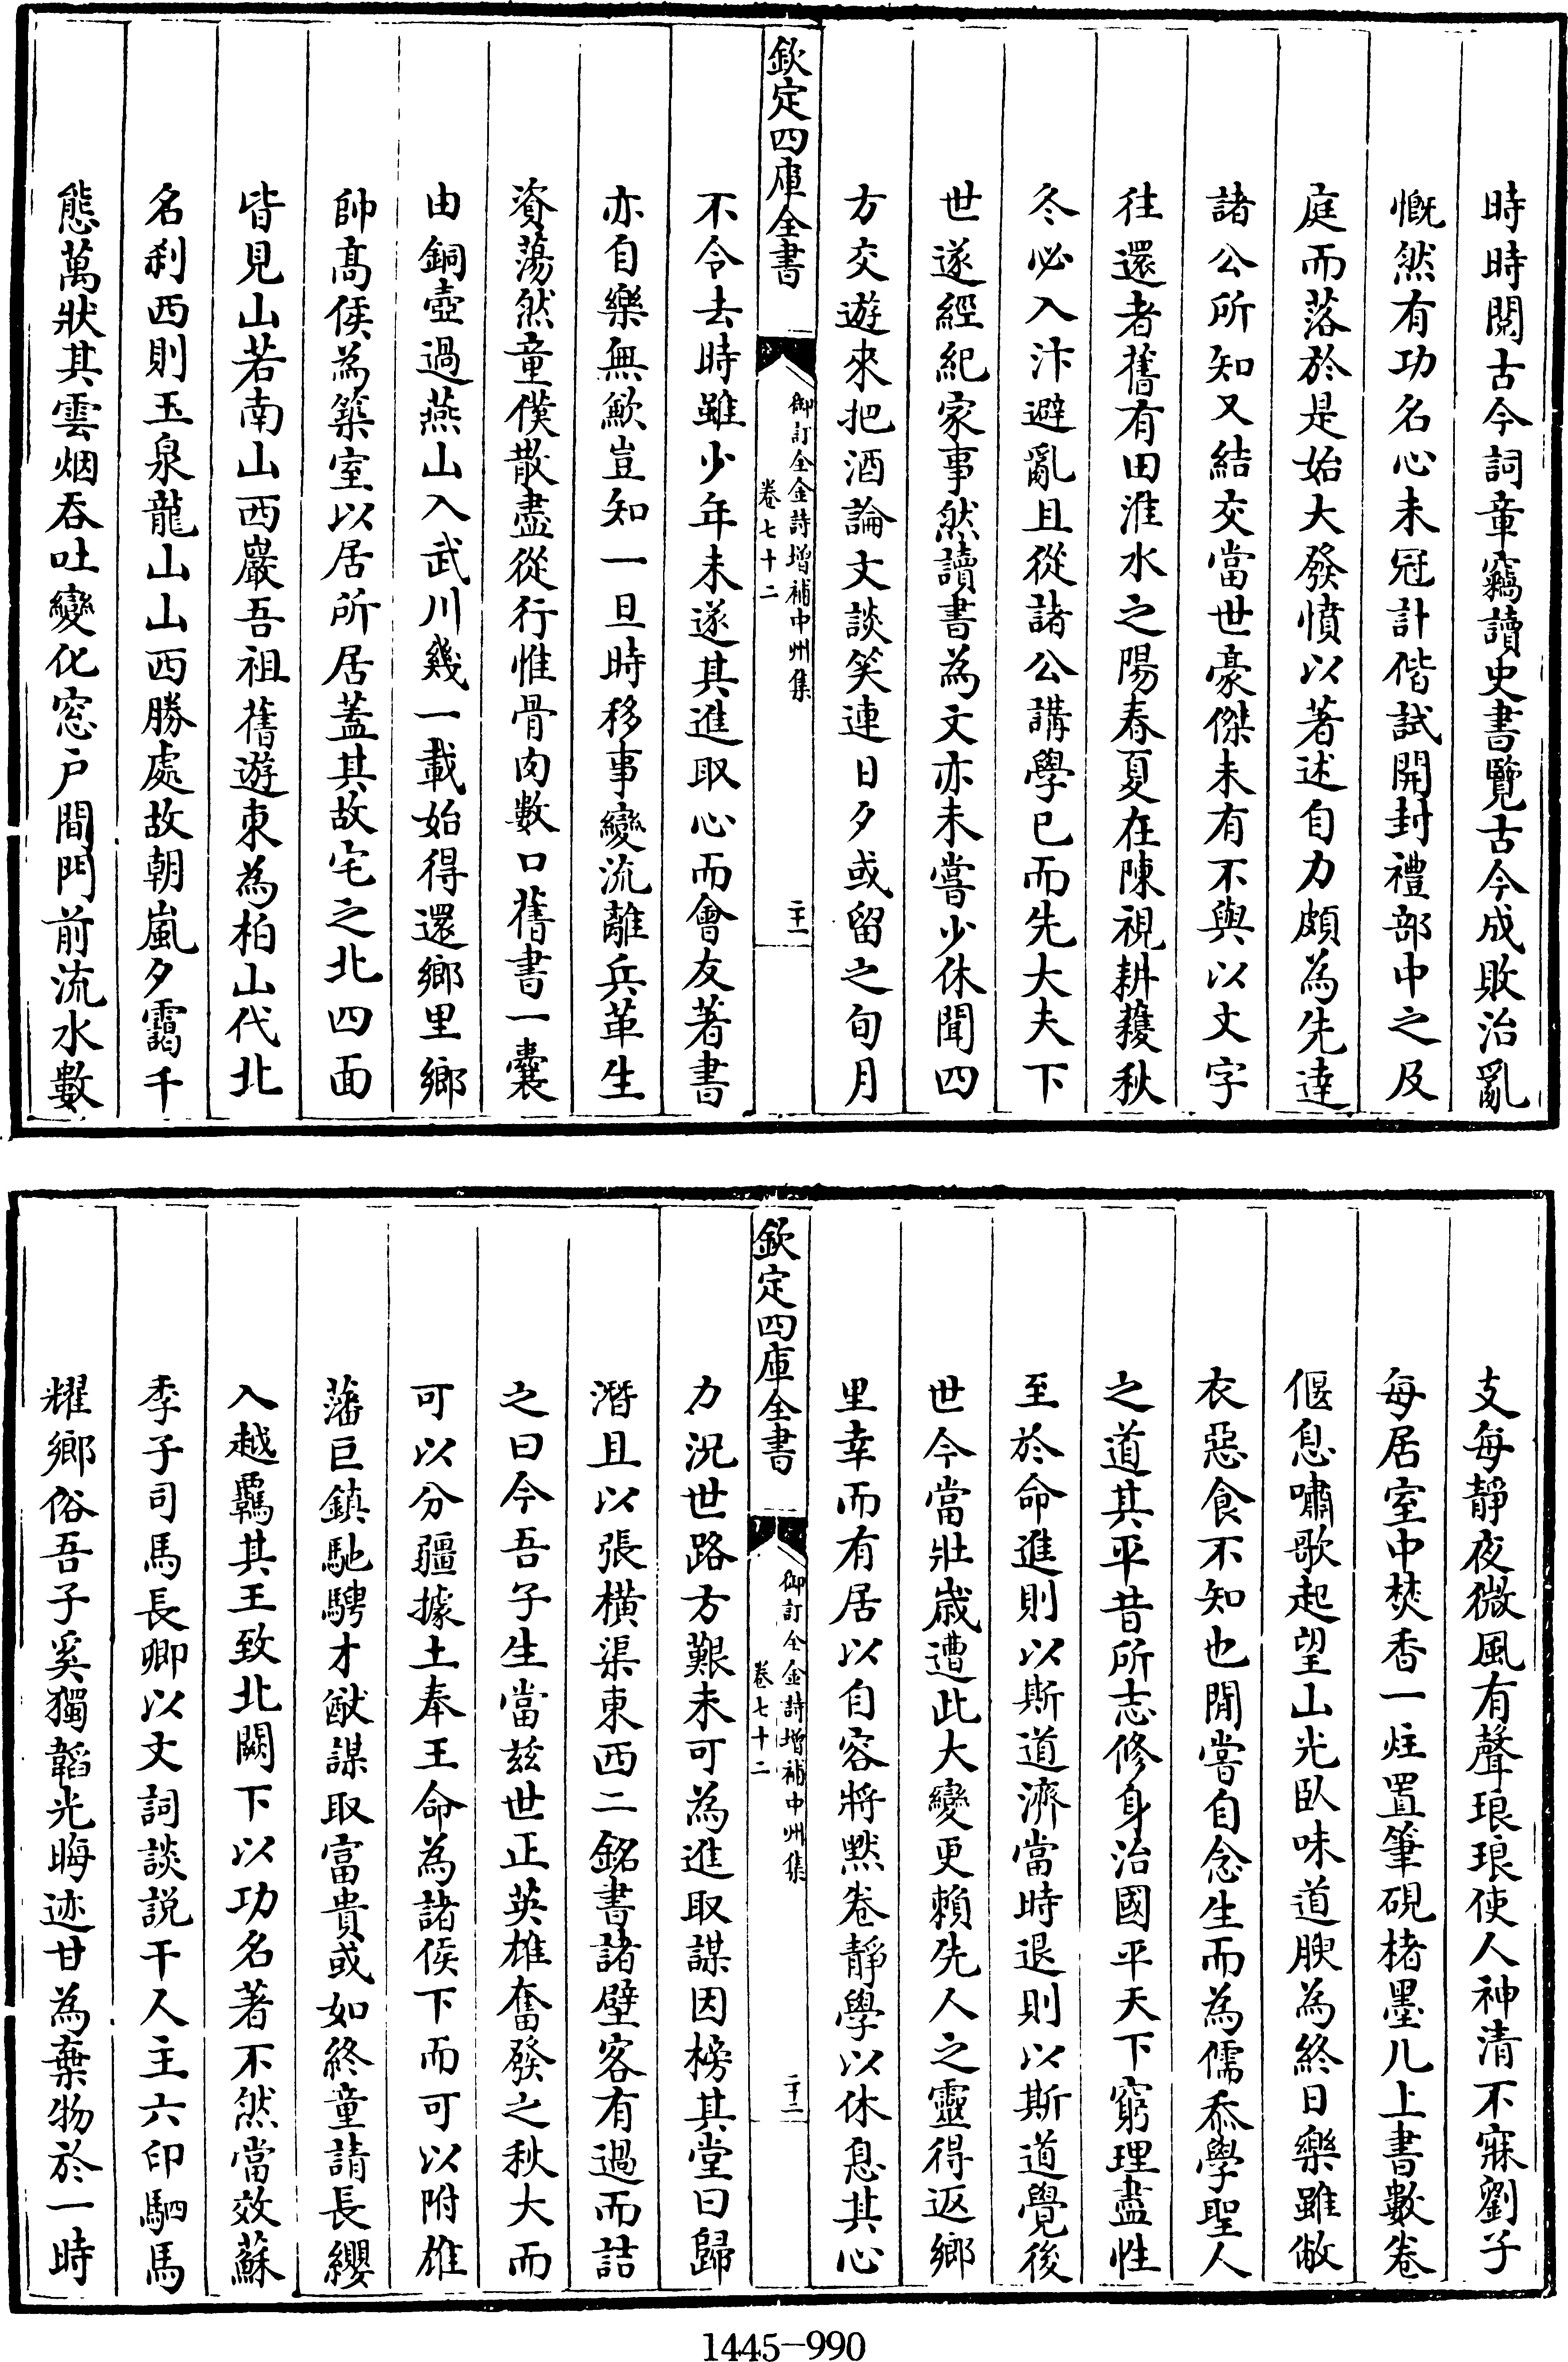 時時閲古今詞章竊讀史書覽古今成敗治亂
慨然有功名心未冠計偕試開封禮部中之及
庭而落於是始大發憤以著述自力頗為先達
諸公所知又結交當世豪傑未有不與以文字
往還者舊有田淮水之陽春夏在陳視耕穫秋
冬必入汴避亂且從諸公講學已而先大夫下
世遂經紀家事然讀書為文亦未嘗少休聞四
方交遊來把酒論文談笑連日夕或留之旬月
欽定四庫全書
御訂全金詩增補中州集
卷七十二
二十一
不令去時雖少年未遂其進取心而會友著書
亦自樂無歉豈知一旦時移事變流離兵革生
資蕩然童僕散盡從行惟骨肉數口舊書一囊
由銅壺過燕山入武川幾一載始得還鄉里鄉
帥高侯為築室以居所居蓋其故宅之北四面
皆見山若南山西巖吾祖舊遊東為柏山代北
名刹西則玉泉龍山山西勝處故朝嵐夕靄千
態萬狀其雲烟吞吐變化窓户間門前流水數
支每靜夜微風有聲琅琅使人神清不寐劉子
每居室中焚香一炷置筆硯楮墨几上書數卷
偃息嘯歌起望山光臥味道腴為終日樂雖敝
衣惡食不知也閒嘗自念生而為儒忝學聖人
之道其平昔所志修身治國平天下窮理盡性
至於命進則以斯道濟當時退則以斯道覺後
世今當壯歲遭此大變更賴先人之靈得返鄉
里幸而有居以自容將黙卷靜學以休息其心
欽定四庫全書
御訂全金詩增補中州集
卷七十二
二十二
力況世路方艱未可為進取謀因榜其堂曰歸
潛且以張橫渠東西二銘書諸壁客有過而詰
之曰今吾子生當兹世正英雄奮發之秋大而
可以分疆據土奉王命為諸侯下而可以附雄
藩巨鎮馳騁才猷謀取富貴或如終童請長纓
入越羈其王致北闕下以功名著不然當效蘇
季子司馬長卿以文詞談説干人主六印駟馬
耀鄉俗吾子奚獨韜光晦迹甘為棄物於一時
1445-990